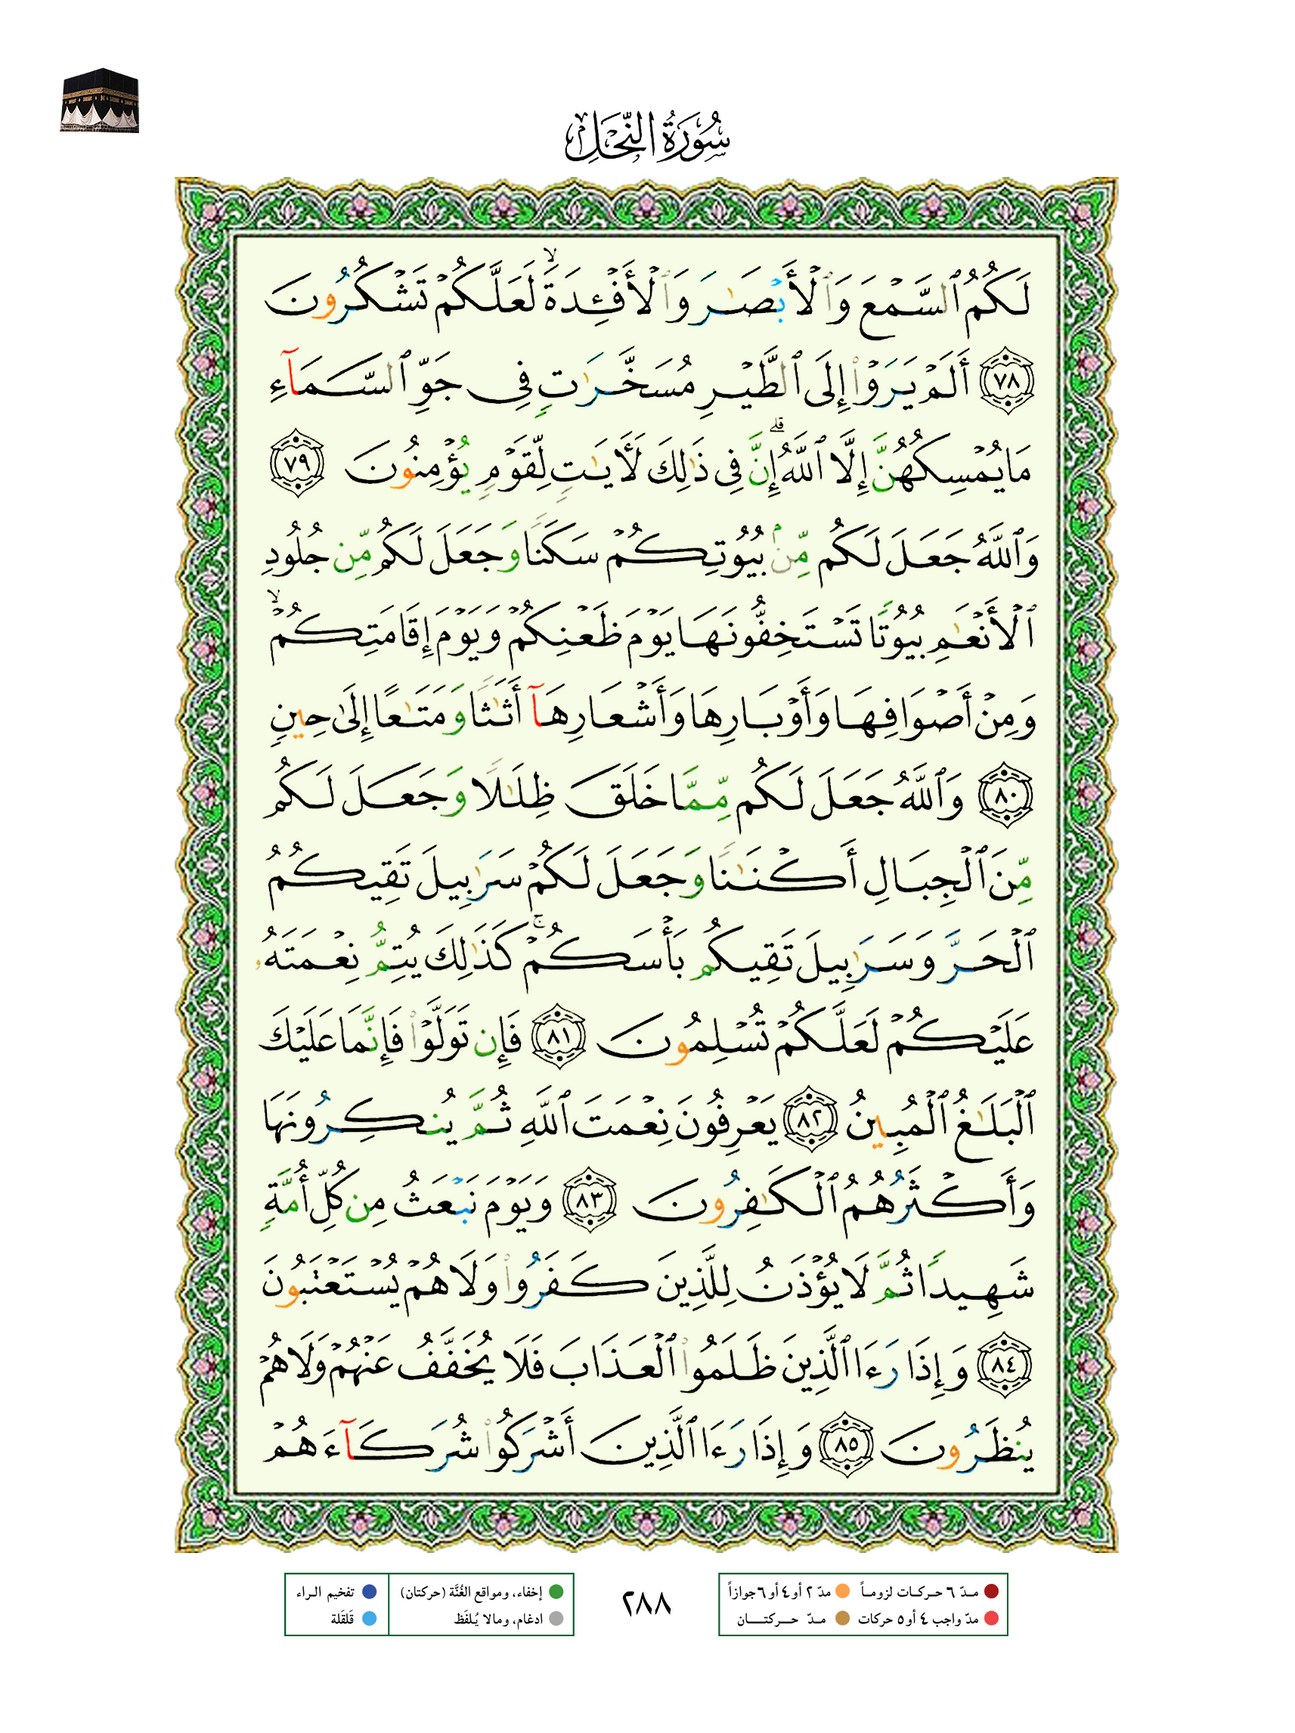 سُورَةُ النَّحْلِ
لَكُمُ ٱلسَّمْعَ وَٱلْأَبْصَٰرَ وَٱلْأَفْـِٔدَةَ ۙ لَعَلَّكُمْ تَشْكُرُونَ
٧٨ أَلَمْ يَرَوْا۟ إِلَى ٱلطَّيْرِ مُسَخَّرَٰتٍ فِى جَوِّ ٱلسَّمَآءِ
مَا يُمْسِكُهُنَّ إِلَّا ٱللَّهُ ۗ إِنَّ فِى ذَٰلِكَ لَـَٔايَٰتٍ لِّقَوْمٍ يُؤْمِنُونَ ٧٩
وَٱللَّهُ جَعَلَ لَكُم مِّنۢ بُيُوتِكُمْ سَكَنًا وَجَعَلَ لَكُم مِّن جُلُودِ
ٱلْأَنْعَٰمِ بُيُوتًا تَسْتَخِفُّونَهَا يَوْمَ ظَعْنِكُمْ وَيَوْمَ إِقَامَتِكُمْ ۙ
وَمِنْ أَصْوَافِهَا وَأَوْبَارِهَا وَأَشْعَارِهَآ أَثَٰثًا وَمَتَٰعًا إِلَىٰ حِينٍ
٨٠ وَٱللَّهُ جَعَلَ لَكُم مِّمَّا خَلَقَ ظِلَٰلًا وَجَعَلَ لَكُم
مِّنَ ٱلْجِبَالِ أَكْنَٰنًا وَجَعَلَ لَكُمْ سَرَٰبِيلَ تَقِيكُمُ
ٱلْحَرَّ وَسَرَٰبِيلَ تَقِيكُم بَأْسَكُمْ ۚ كَذَٰلِكَ يُتِمُّ نِعْمَتَهُۥ
عَلَيْكُمْ لَعَلَّكُمْ تُسْلِمُونَ ٨١ فَإِن تَوَلَّوْا۟ فَإِنَّمَا عَلَيْكَ
ٱلْبَلَٰغُ ٱلْمُبِينُ ٨٢ يَعْرِفُونَ نِعْمَتَ ٱللَّهِ ثُمَّ يُنكِرُونَهَا
وَأَكْثَرُهُمُ ٱلْكَٰفِرُونَ ٨٣ وَيَوْمَ نَبْعَثُ مِن كُلِّ أُمَّةٍ
شَهِيدًا ثُمَّ لَا يُؤْذَنُ لِلَّذِينَ كَفَرُوا۟ وَلَا هُمْ يُسْتَعْتَبُونَ
٨٤ وَإِذَا رَءَا ٱلَّذِينَ ظَلَمُوا۟ ٱلْعَذَابَ فَلَا يُخَفَّفُ عَنْهُمْ وَلَا هُمْ
يُنظَرُونَ ٨٥ وَإِذَا رَءَا ٱلَّذِينَ أَشْرَكُوا۟ شُرَكَآءَهُمْ
مدّ ٦ حركات لزوماً مدّ ٢ أو ٤ أو ٦ جوازاً
مدّ واجب ٤ أو ٥ حركات مدّ حركتان
٢٨٨
إخفاء، ومواقع الغُنَّة (حركتان) تفخيم الراء
ادغام، ومالا يُلفَظ قلقلة